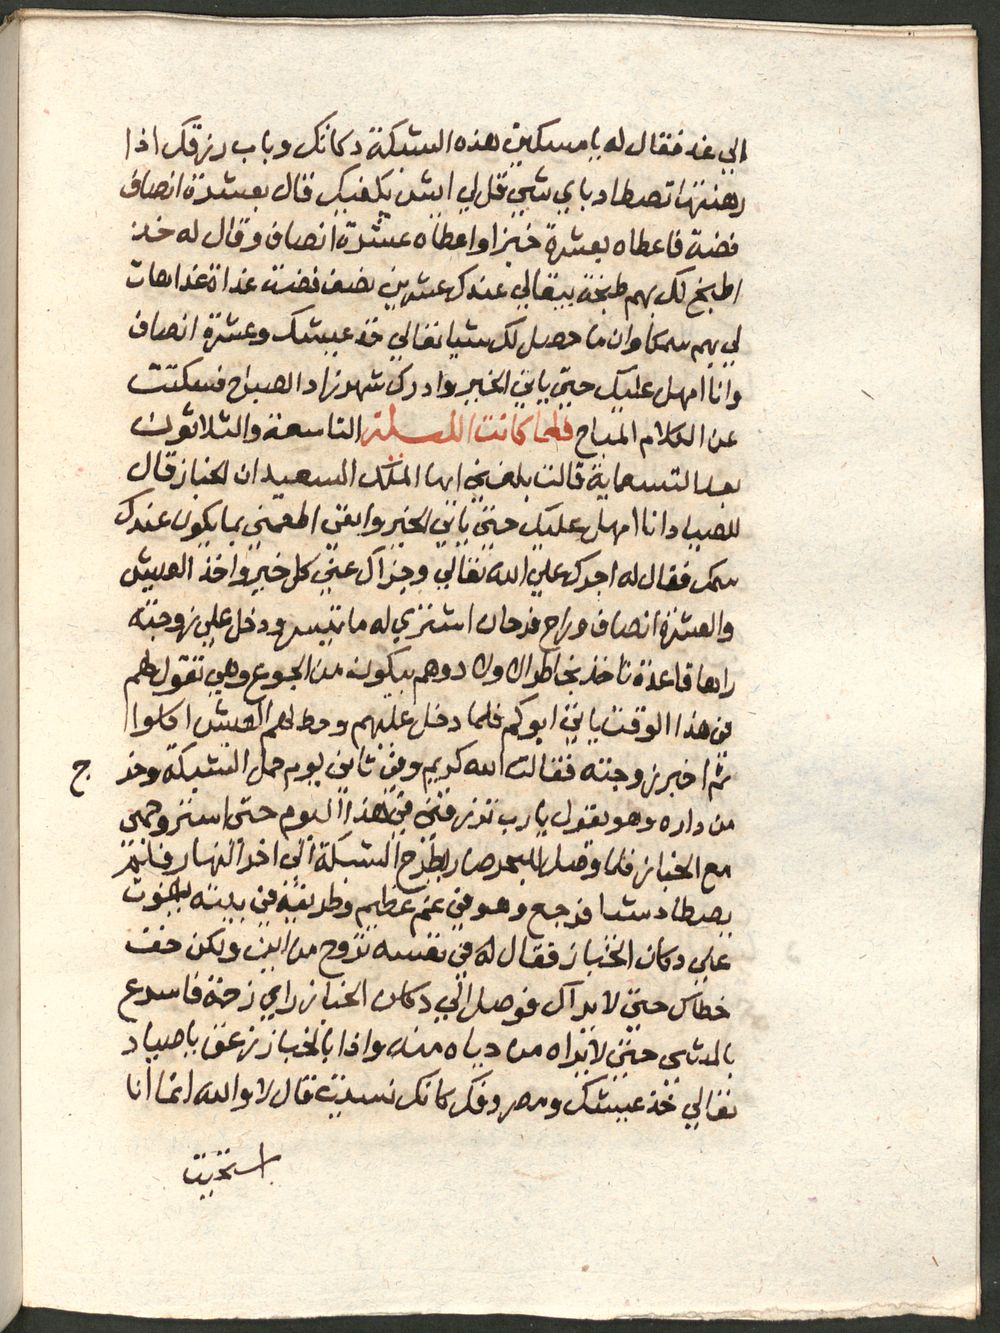 الي غد فقال له يا مسكين هذه الشبكة دكانك وباب رزقك اذا
رهنتها تصطاد باي شي قل لي ايش يكفيك قال بعشرة انصاف
فضة فاعطاه بعشرة خبزا واعطاه عشرة انصاف وقال له خذ
اطبخ لك بهم طبخة يبقالي عندك عشرين نصف فضة غداة غدا هات
لي بهم سمكا وان ما حصل لك شيا تعالي خذ عيشك وعشرة انصاف
وانا امهل عليك حتي ياتي الخير وادرك شهرزاد الصباح فسكتت
عن الكلام المباح فلما كانت الليلة التاسعة والثلاثون
بعد التسعماية قالت بلغني ايها الملك السعيد ان الخباز قال
للصياد انا امهل عليك حتي ياتي الخير وابقي اطعمني بما يكون عندك
سمك فقال له اجرك علي الله تعالي وجزاك عني كل خير واخذ العيش
والعشرة انصاف وراح فرحان اشتري له ما تيسر ودخل علي زوجته
راها قاعدة تاخذ بخاطر الاولاد وهم يبكون من الجوع وهي تقول لهم
في هذا الوقت ياتي ابوكم فلما دخل عليهم وحط لهم العيش اكلوا
ثم اخبر زوجته فقالت الله كريم وفي ثاني يوم حمل الشبكة وخر ج
من داره وهو يقول يارب ترزقني في هذا اليوم حتي استر وجهي
مع الخباز فلما وصل للبحر صار يطرح الشبكة الي اخر النهار فلم
يصطاد شيا فرجع وهو في غم عظيم وطريقة في بيته يفوت
علي دكان الخباز فقال له في نفسه تروح من اين ولكن خفف
خطاك حتي لا يراك فوصل الي دكان الخباز راي زحمة فاسرع
بالمشي حتي لا يراه من حياه منه واذا بالخباز زعق يا صياد
تعالي خذ عيشك ومصروفك كانك نسيت قال لا والله انما انا
استحييت